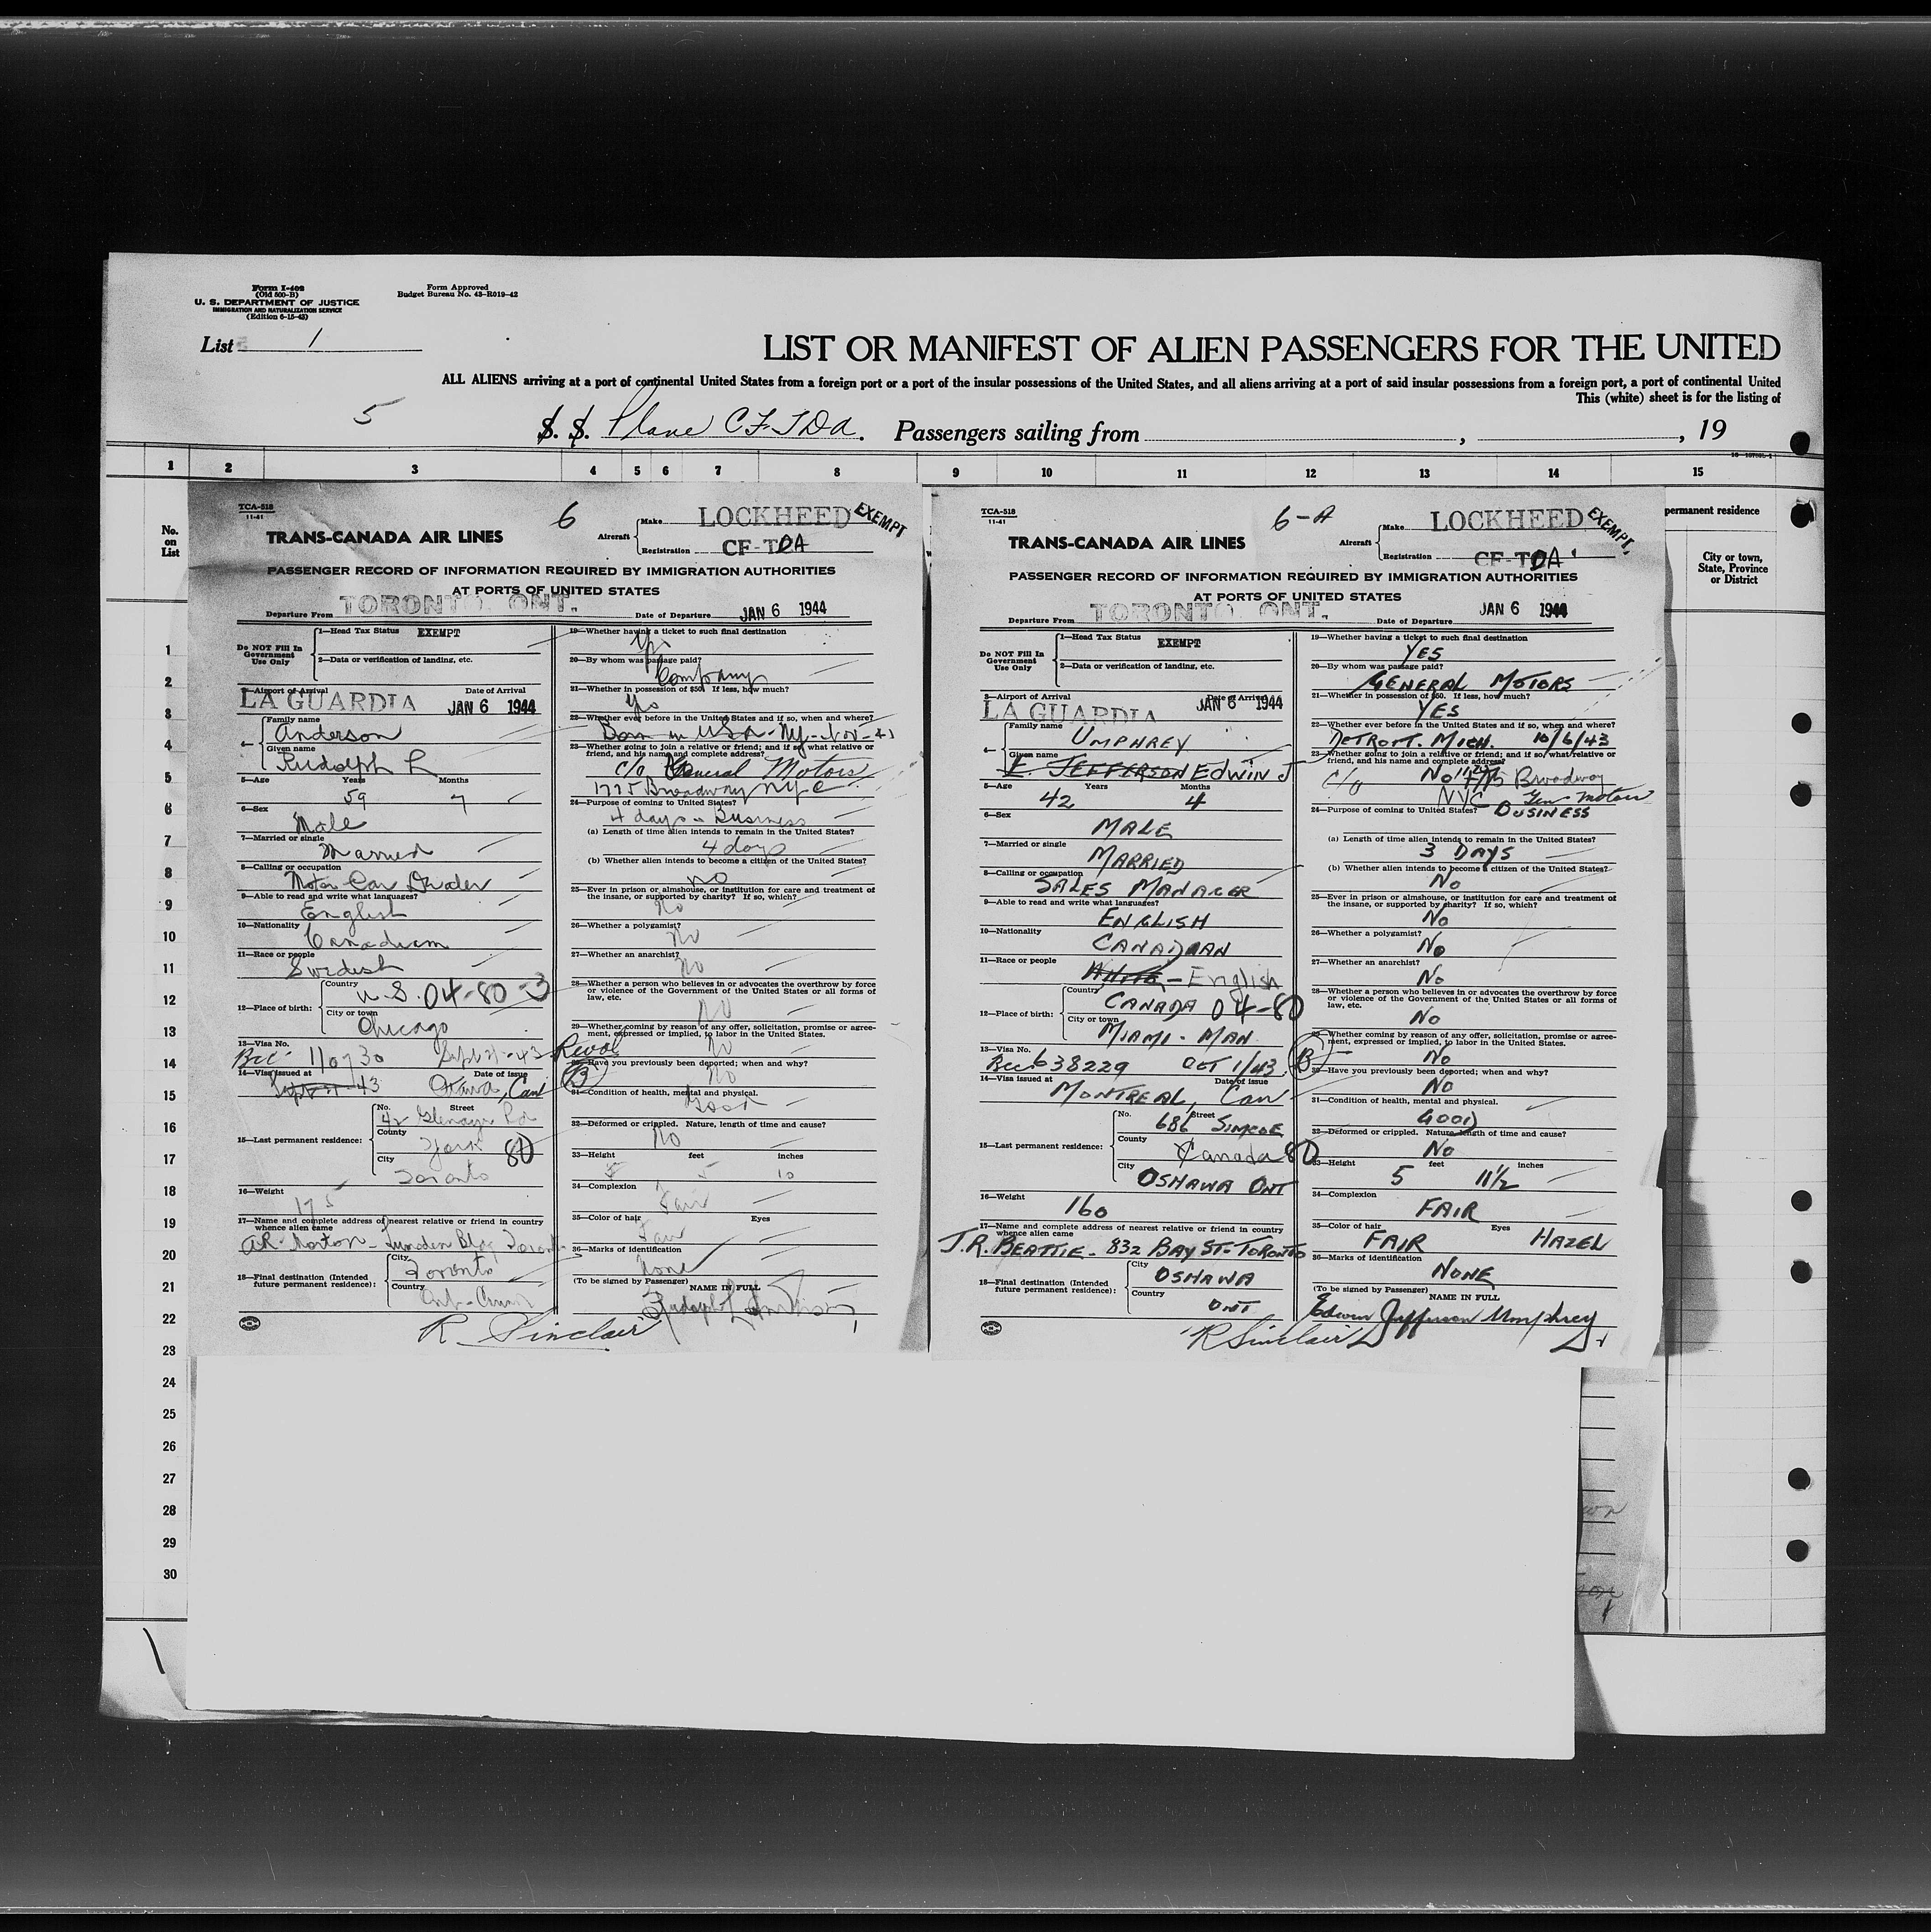 Form I-402
(Old 500-B)
U. S. DEPARTMENT OF JUSTICE
IMMIGRATION AND NATURALIZATION SERVICE
(Edition 6-15-43)
Form Approved
Budget Bureau No. 43-R019-42
List 1
LIST OR MANIFEST OF ALIEN PASSENGERS FOR THE UNITED
ALL ALIENS arriving at a port of continental United States from a foreign port or a port of the insular possessions of the United States, and all aliens arriving at a port of said insular possessions from a foreign port, a port of continental United
This (white) sheet is for the listing of
5
S. S. Plane CF-TDA. Passengers sailing from , , 19
1 2 3 4 5 6 7 8 9 10 11 12 13 14 15
No. on List
permanent residence
City or town, State, Province or District
1
2
3
4
5
6
7
8
9
10
11
12
13
14
15
16
17
18
19
20
21
22
23
24
25
26
27
28
29
30
TCA-518
11-41
6
TRANS-CANADA AIR LINES
Aircraft
Make LOCKHEED EXEMPT
Registration CF-TDA
PASSENGER RECORD OF INFORMATION REQUIRED BY IMMIGRATION AUTHORITIES
AT PORTS OF UNITED STATES
Departure From TORONTO, ONT. Date of Departure JAN 6 1944
Do NOT Fill In Government Use Only
1—Head Tax Status EXEMPT
2—Data or verification of landing, etc.
3—Airport of Arrival Date of Arrival
LA GUARDIA JAN 6 1944
4— Family name
Anderson
Given name
Rudolph L
5—Age Years Months
59 7
6—Sex
Male
7—Married or single
Married
8—Calling or occupation
Motor Car Dealer
9—Able to read and write what languages?
English
10—Nationality
Canadian
11—Race or people
Swedish
12—Place of birth:
Country
U.S. 04-80-3
City or town
Chicago
13—Visa No.
Bcc 110730 Sept 21-43
14—Visa issued at Date of issue
Sept 21-43 Ottawa, Can
15—Last permanent residence:
No. Street
42 Glenayr Rd
County
York 80
City
Toronto
16—Weight
175
17—Name and complete address of nearest relative or friend in country whence alien came
AR Morton - Lumsden Bldg Toronto
18—Final destination (Intended future permanent residence):
City
Toronto
Country
Ont-
19—Whether having a ticket to such final destination
Yes
20—By whom was passage paid?
Company
21—Whether in possession of $50. If less, how much?
Yes
22—Whether ever before in the United States and if so, when and where?
Born in USA - NY - Nov-43
23—Whether going to join a relative or friend; and if so, what relative or friend, and his name and complete address?
c/o General Motors
1775 Broadway NYC
24—Purpose of coming to United States?
4 days - Business
(a) Length of time alien intends to remain in the United States?
4 days
(b) Whether alien intends to become a citizen of the United States?
no
25—Ever in prison or almshouse, or institution for care and treatment of the insane, or supported by charity? If so, which?
No
26—Whether a polygamist?
No
27—Whether an anarchist?
No
28—Whether a person who believes in or advocates the overthrow by force or violence of the Government of the United States or all forms of law, etc.
No
29—Whether coming by reason of any offer, solicitation, promise or agreement, expressed or implied, to labor in the United States.
No
30—Have you previously been deported; when and why?
B No
31—Condition of health, mental and physical.
Good
32—Deformed or crippled. Nature, length of time and cause?
No
33—Height feet inches
5 10
34—Complexion
Fair
35—Color of hair Eyes
Fair
36—Marks of identification
None
(To be signed by Passenger) NAME IN FULL
Rudolph L Anderson
R. Sinclair
TCA-518
11-41
6-A
TRANS-CANADA AIR LINES
Aircraft
Make LOCKHEED EXEMPT
Registration CF-TDA
PASSENGER RECORD OF INFORMATION REQUIRED BY IMMIGRATION AUTHORITIES
AT PORTS OF UNITED STATES
Departure From TORONTO, ONT. Date of Departure JAN 6 1944
Do NOT Fill In Government Use Only
1—Head Tax Status EXEMPT
2—Data or verification of landing, etc.
3—Airport of Arrival Date of Arrival
LA GUARDIA JAN 6 1944
4— Family name
UMPHREY
Given name
E. JEFFERSON EDWIN J
5—Age Years Months
42 4
6—Sex
MALE
7—Married or single
MARRIED
8—Calling or occupation
SALES MANAGER
9—Able to read and write what languages?
ENGLISH
10—Nationality
CANADIAN
11—Race or people
WHITE - English
12—Place of birth:
Country
CANADA 04-80
City or town
MIAMI - MAN
13—Visa No.
Bcc 638229 OCT 1/43
14—Visa issued at Date of issue
MONTREAL, Can
15—Last permanent residence:
No. Street
686 SIMCOE
County
Canada 80
City
OSHAWA ONT
16—Weight
160
17—Name and complete address of nearest relative or friend in country whence alien came
J.R. BEATTIE - 832 BAY ST - TORONTO
18—Final destination (Intended future permanent residence):
City
OSHAWA
Country
ONT
19—Whether having a ticket to such final destination
YES
20—By whom was passage paid?
GENERAL MOTORS
21—Whether in possession of $50. If less, how much?
YES
22—Whether ever before in the United States and if so, when and where?
DETROIT. MICH. 10/6/43
23—Whether going to join a relative or friend; and if so, what relative or friend, and his name and complete address?
c/o No 1775 Broadway
NYC Gen Motors
24—Purpose of coming to United States?
BUSINESS
(a) Length of time alien intends to remain in the United States?
3 DAYS
(b) Whether alien intends to become a citizen of the United States?
No
25—Ever in prison or almshouse, or institution for care and treatment of the insane, or supported by charity? If so, which?
No
26—Whether a polygamist?
No
27—Whether an anarchist?
No
28—Whether a person who believes in or advocates the overthrow by force or violence of the Government of the United States or all forms of law, etc.
No
29—Whether coming by reason of any offer, solicitation, promise or agreement, expressed or implied, to labor in the United States.
B No
30—Have you previously been deported; when and why?
No
31—Condition of health, mental and physical.
GOOD
32—Deformed or crippled. Nature, length of time and cause?
No
33—Height feet inches
5 11½
34—Complexion
FAIR
35—Color of hair Eyes
FAIR HAZEL
36—Marks of identification
NONE
(To be signed by Passenger) NAME IN FULL
Edwin Jefferson Umphrey
R Sinclair